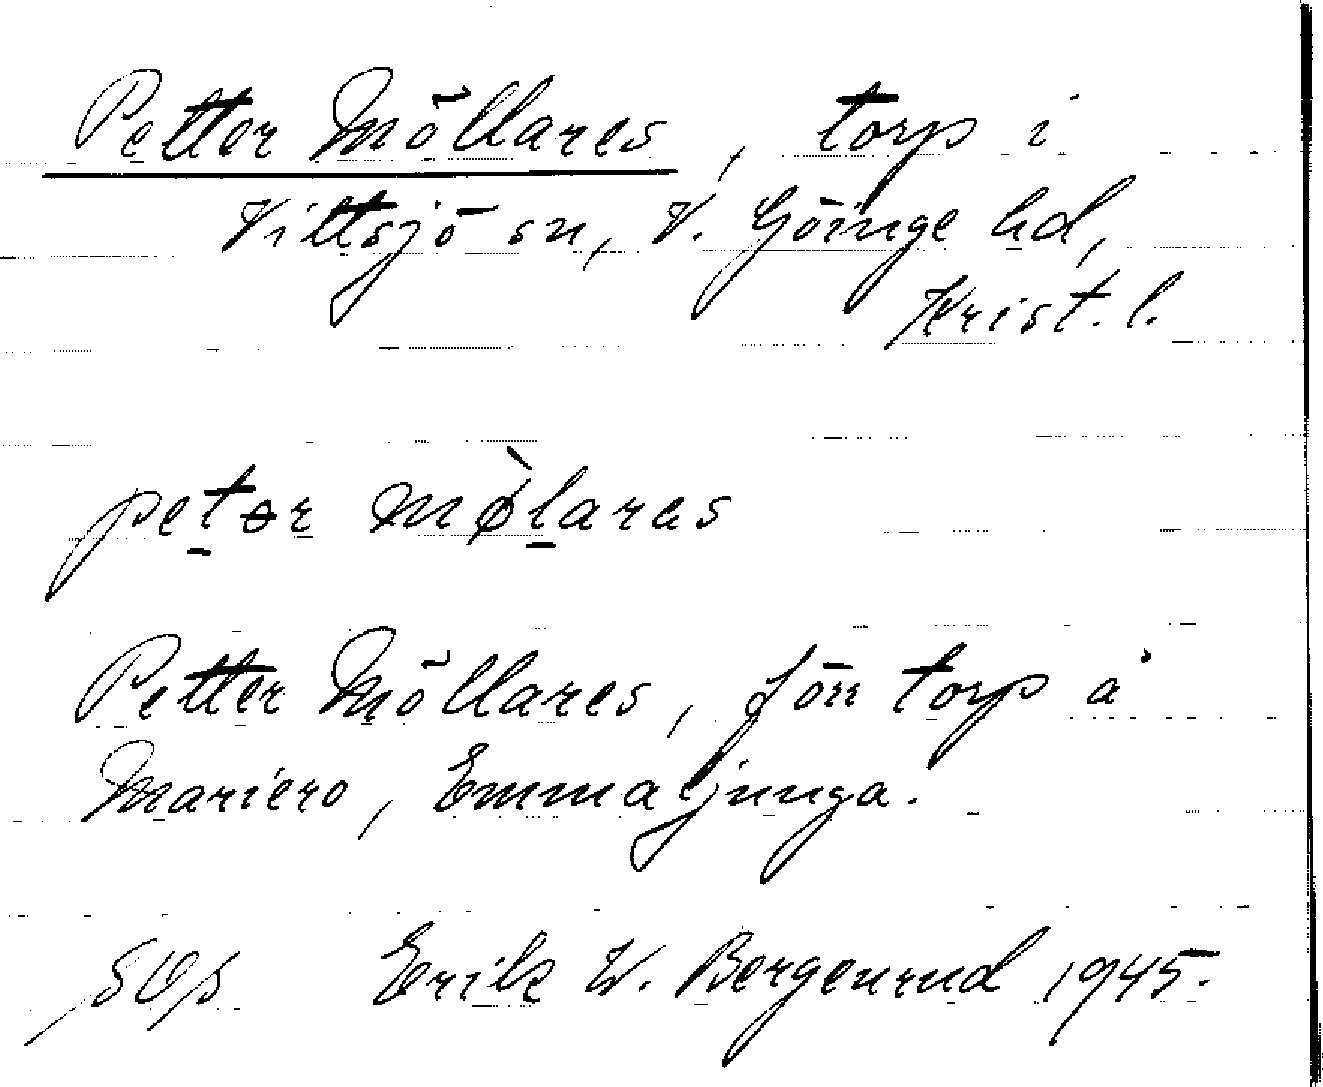 Petter Möllares, torp i
Vittsjö sn, V. Göinge hd,
Krist. l.
petər mø̀laras
Petter Möllares, förr torp å
Mariero, Emmaljunga.
Erik W. Bergenrud 1945.